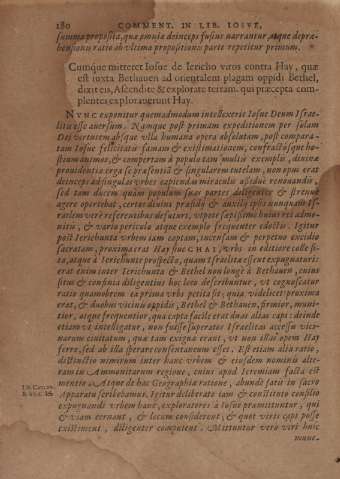 180 COMMENT. IN LIB. IOSVE,
summa proposita, quæ omnia deinceps fusius narrantur, atque depræ-
hensionis ratio ab vltima propositionis parte repetitur primùm.
Cumque mitteret Iosue de Iericho viros contra Hay, quæ
est iuxta Bethauen ad orientalem plagam oppidi Bethel,
dixit eis, Ascendite & explorate terram. qui præcepta com-
plentes explorauerunt Hay.
NVNC exponitur quemadmodum intellexerit Iosue Deum Israe-
liti esse auersum. Namque post primam expeditionem per solam
Dei virtutem absque vlla humana opera absolutam, post compara-
tam Iosue felicitatis famam & existimationem, confractosque ho-
stium animos, & compertam à populo tam multis exemplis, diuinæ
prouidentiæ erga se præsentiã & singularem tutelam, non opus erat
deinceps ad singulas vrbes capiendas miracula assiduè renouandis,
sed tam ducem quàm populum suas partes diligenter & strenuè
agere oportebat, certos diuini præsidij & auxilij ipsis nunquam Is-
raëlem verè referentibus defuturi, vtpote sæpissimè huius rei admo-
niti, & vario periculo atque exemplo frequenter edocti. Igitur
post Ierichunta vrbem iam captam, incensam & perpetuo excidio
sacratam, proxima erat Hay siue CHAI, vrbs in editiore colle si-
ta, atque à Ierichunte prospecta, quam Israelitæ essent expugnaturi:
erat enim inter Ierichunta & Bethel non longè à Bethauen, cuius
situs & confinia diligentius hoc loco describuntur, vt cognoscatur
ratio quamobrem ea prima vrbs petita sit: quia videlicet proxima
erat, & duobus vicinis oppidis, Bethel & Bethauen, firmior, muni-
tior, atque frequentior, qua capta facile erat duas alias capi: deinde
etiam vt intelligatur, non fuisse superatos Israelitas accessu vici-
narum ciuitatum, quæ tam exigua erant, vt non illæ opem Hay
ferre, sed ab illa sperare consentaneum esset. Est etiam alia ratio,
distinctio nimirum inter hanc vrbem & eiusdem nominis alte-
ram in Ammonitarum regione, cuius apud Ieremiam facta est
mentio. Atque de hac Geographiæ ratione, abundè satis in sacro
Apparatu scribebamus. Igitur deliberato iam & constituto consilio
expugnandi vrbem hanc, exploratores à Iosue præmittuntur, qui
& viam cernant, & locum considerent, & quot viris capi posse
existiment, diligenter computent. Mittuntur verò viri huic
mune-